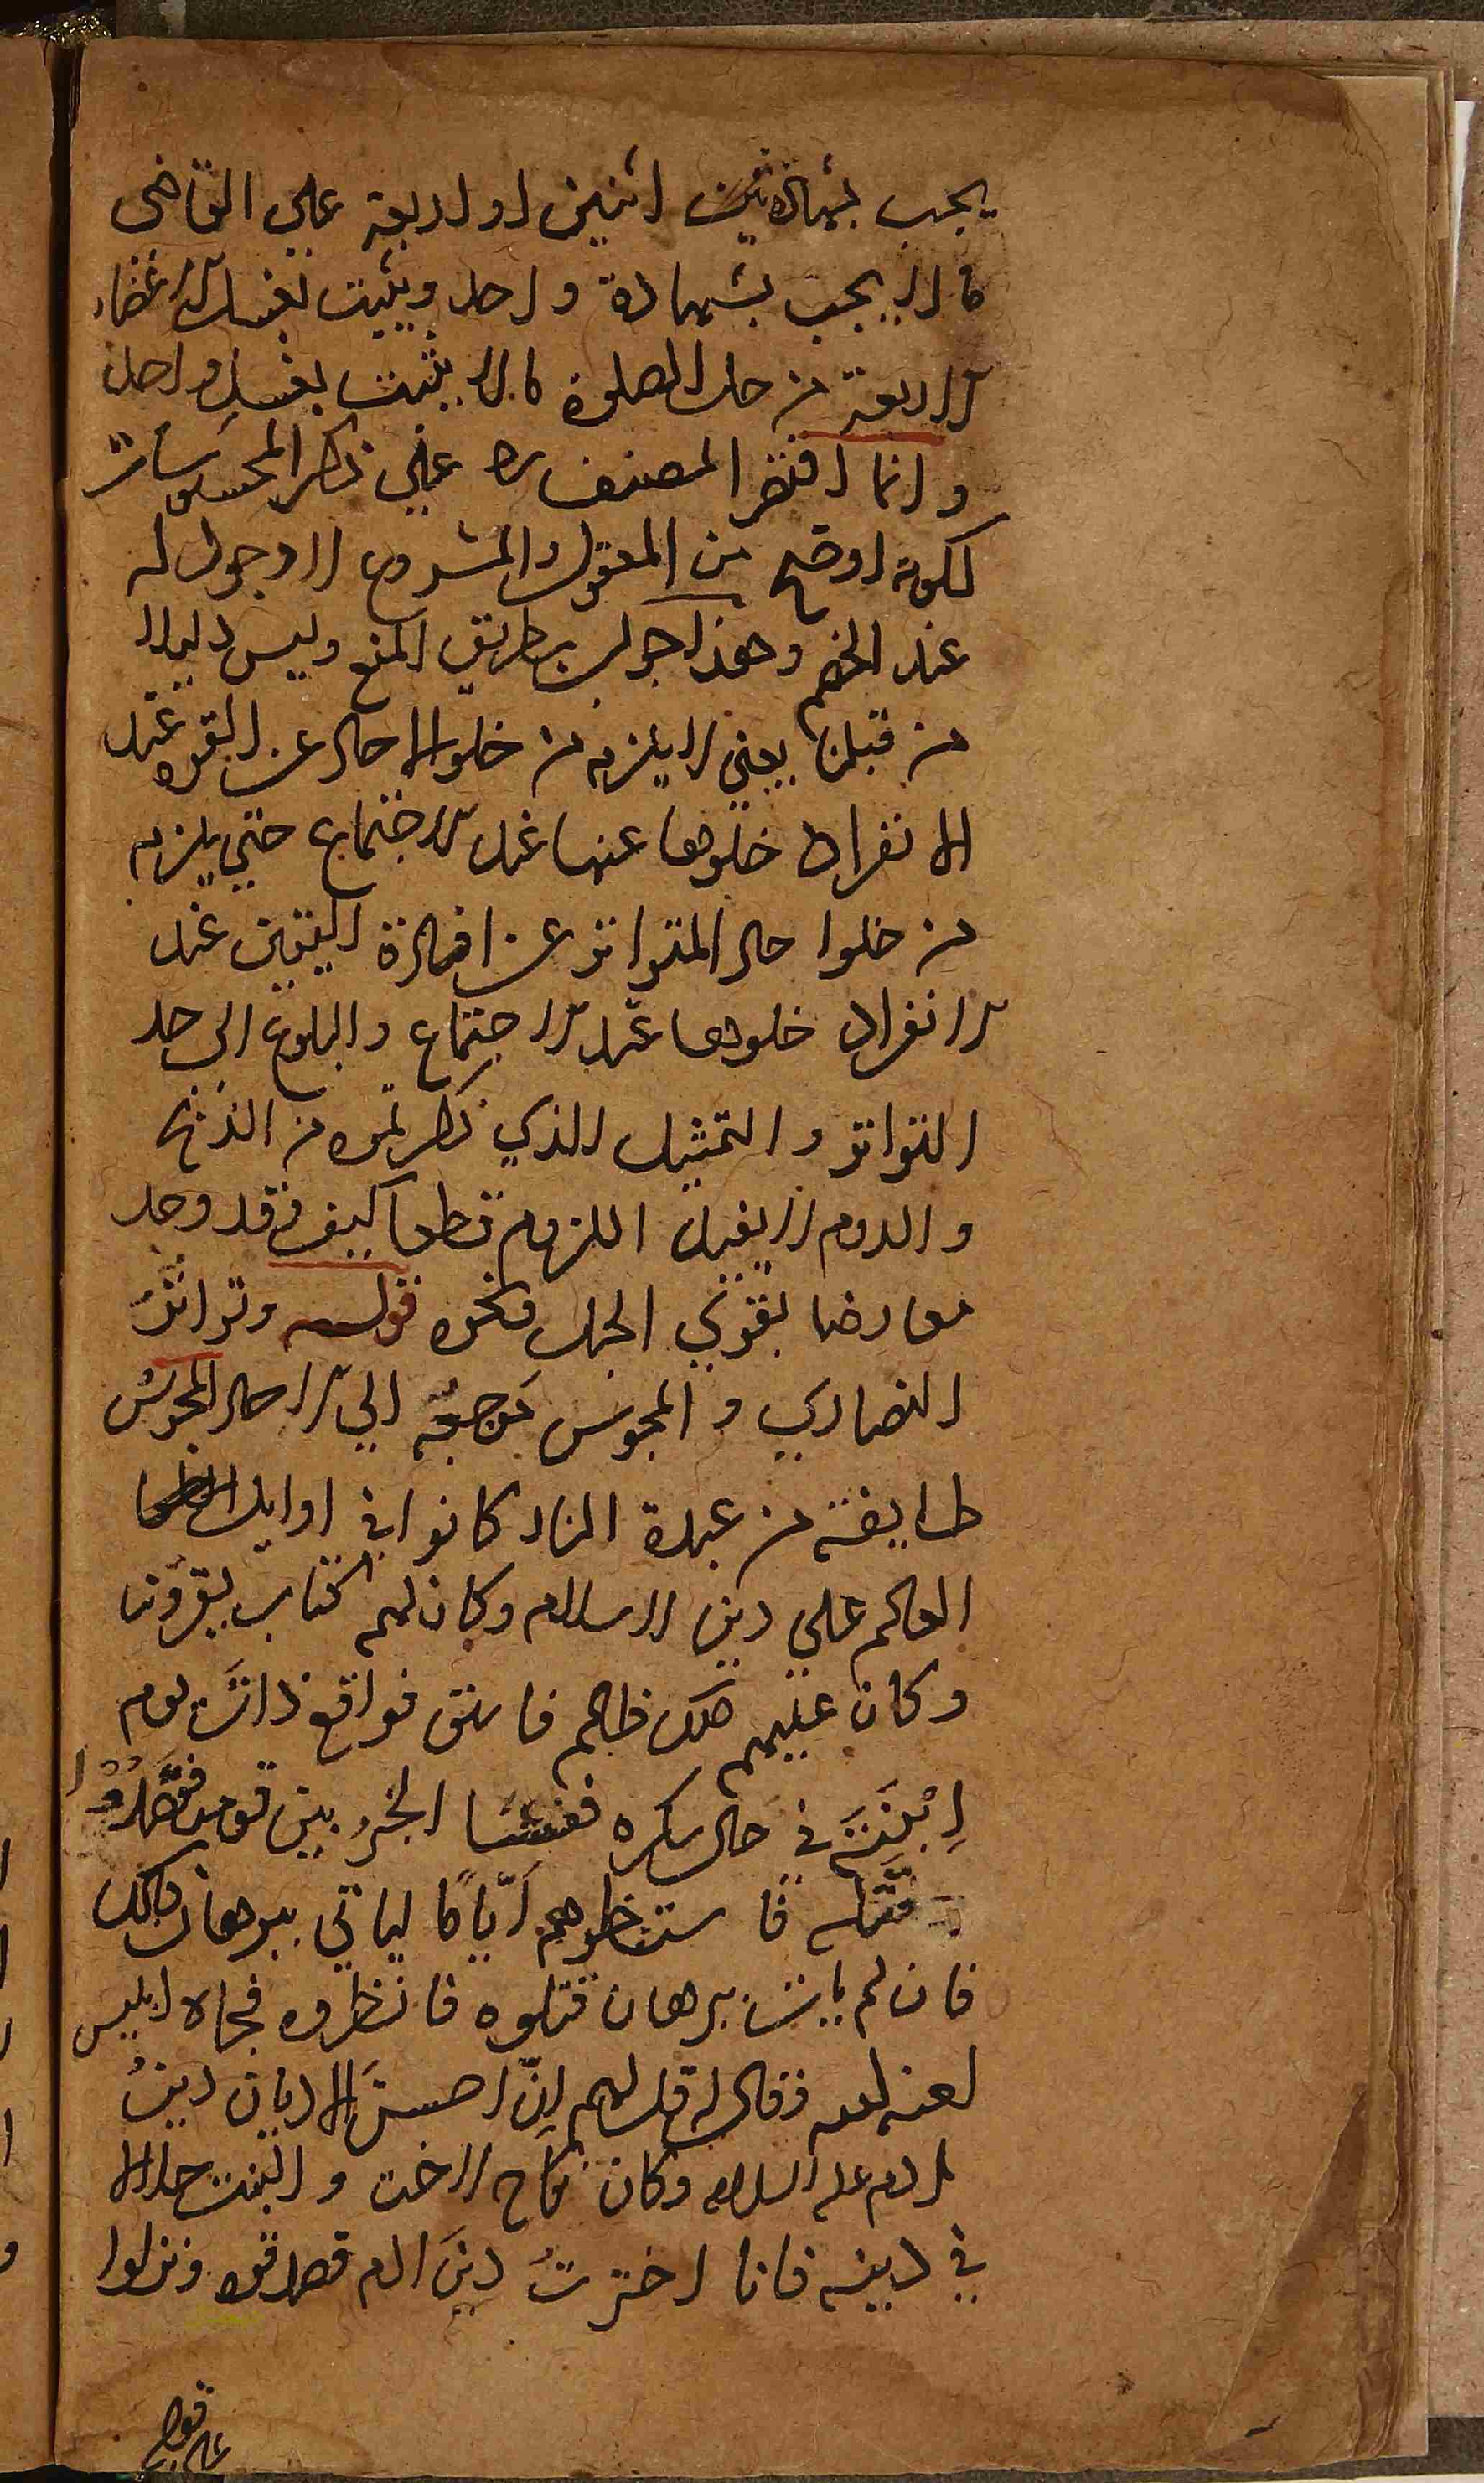 يجب بشهادة اثنين او اربعة علي القاضى
ما لا يجب بشهادة واحد ويثبت بغسل الاعضاء
الاربعة من حل الصلوة ما لا يثبت بغسل واحد
وانما اقتصر المصنف ره علي ذكر المحسوسات
لكونه اوضح من المعقول والمشروع او وجوله
عند الخصم وهذا جواب بطريق المنع وليس دليلا
من قبلنا يعني لا يلزم من خلو الاحاد عن القوة عند
الانفراد خلوها عنها عند الاجتماع حتي يلزم
من خلوا حاد المتواتر عن افادة اليقين عند
الانفراد خلوها عند الاجتماع والبلوغ الى حد
التواتر والتمثيل الذي ذكرتموه من الذبح
والدوم لا يفيد اللزوم قطعا كيف وقد وجد
معارضا بقوتي الجبل ونحوه قوله وتواتر
النصاري والمجوس مرجعه الي الاحاد المجوس
طايفة من عبدة النار كانوا في اوايل
العالم علي دين الاسلام وكان لهم كتاب يقرؤنه
وكان عليهم ملك ظالم فاسق فواقع ذات يوم
اِبْنَتَهُ في حال سكره ففشا الخبر بين قومه فقصدوا
قتله فاستنظرهم اَيّامًا لياتي ببرهان ذلك
فان لم يات ببرهان قتلوه فانظروه فجاه ابليس
لعنه الله فقال له قل لهم اِنّ احسنَ الاديان دينُ
ادم عليه السلام وكان نكاح الاخت والبنت حلالا
في دينه فانا اخترتُ دينَ ادم فصدقوه ونزلوا